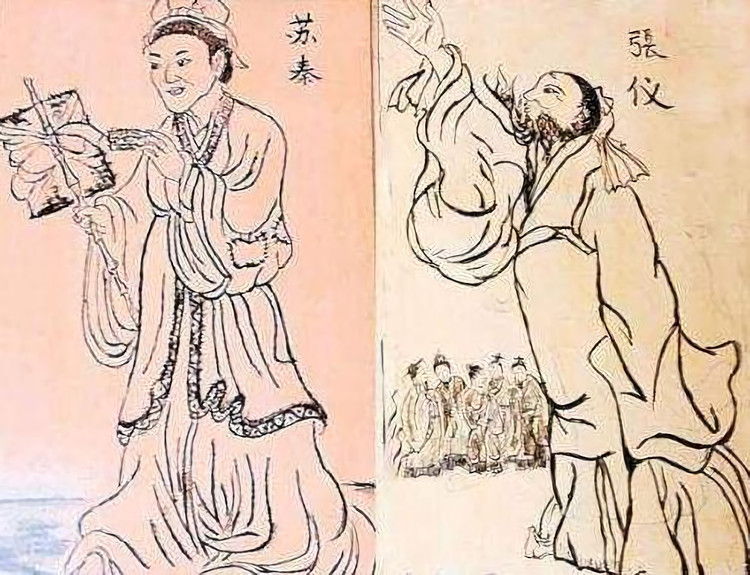 苏秦
張仪